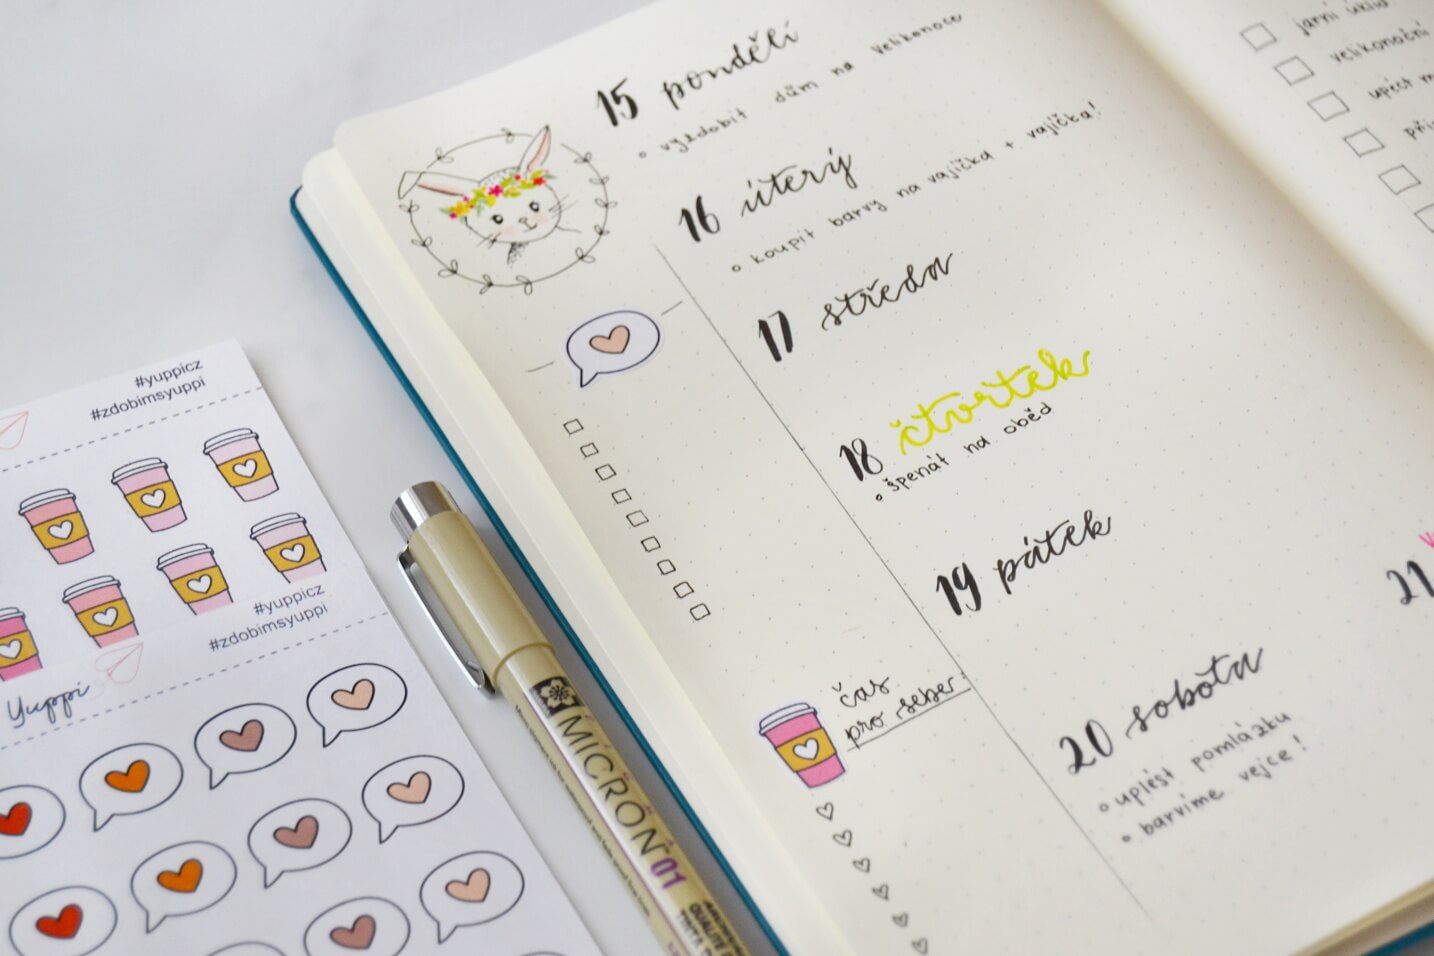 15 pondělí
vyzdobit dům na Velikonoce
16 úterý
koupit barvy na vajíčka + vajíčka!
17 středa
18 čtvrtek
špenát na oběd
19 pátek
20 sobota
uplést pomlázku
barvíme vejce!
čas
pro sebe!
jarní úklid
velikonoční
upéct
21
#yuppicz
#zdobimsyuppi
#yuppicz
#zdobimsyuppi
Yuppi
MICRON 01